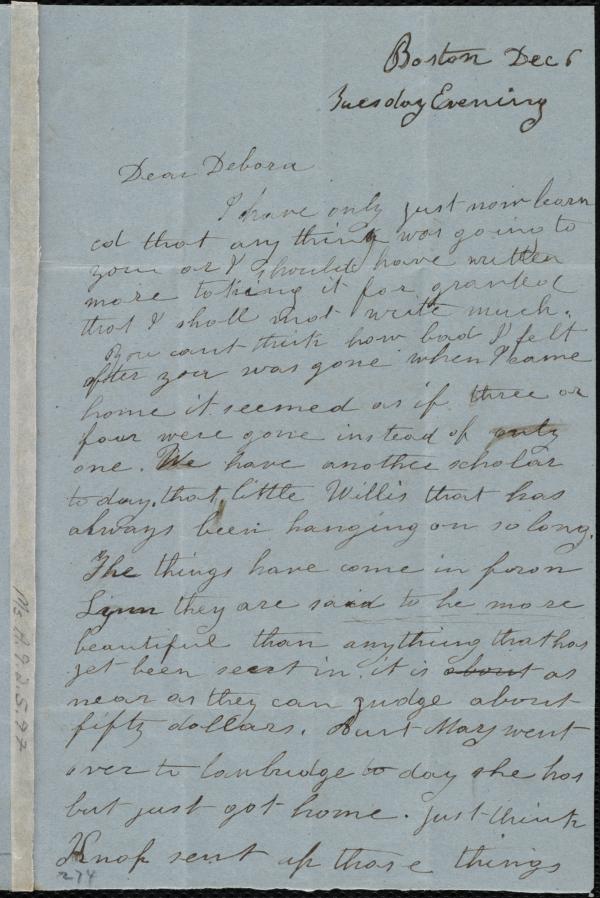 Boston Dec 6
Tuesday Evening
Dear Debora
I have only just now learn
ed that any thing was going to
you or I should have written
more taking it for granted
that I shall not write much.
You cant think how bad I felt
after you was gone when I came
home it seemed as if three or
four were gone instead of only
one. We have another scholar
to day, that little Willis that has
always been hanging on so long.
The things have come in from
Lynn they are said to be more
beautiful than anything that has
yet been sent in. it is about as
near as they can judge about
fifty dollars. Aunt Mary went
over to Cambridge to day she has
but just got home. Just think
Knap sent up those things
274
Ms.A.9.2.5.97